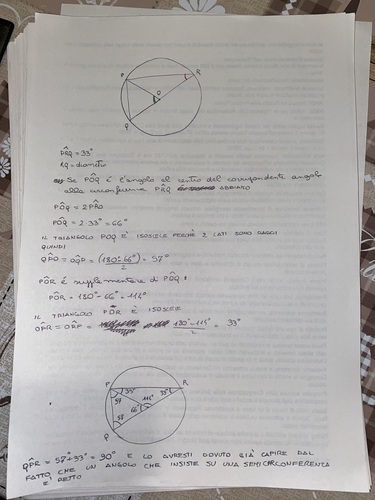 P
R
O
Q
PR̂Q = 33°
RQ = diametro
Se PÔQ è l'angolo al centro del corrispondente angolo
alla circonferenza PR̂Q ABBIAMO
PÔQ = 2PR̂O
PÔQ = 2·33° = 66°
IL TRIANGOLO POQ È ISOSCELE PERCHÉ 2 LATI SONO RAGGI
QUINDI
QP̂O = OQ̂P = (180°-66°)/2 = 57°
PÔR è supplementare di PÔQ:
PÔR = 180° - 66° = 114°
IL TRIANGOLO PÔR È ISOSCELE
OP̂R = OR̂P = 180°-114°/2 = 33°
P
R
33°
33°
57
114°
66°
57
Q
QP̂R = 57°+33° = 90° E LO AVRESTI DOVUTO GIÀ CAPIRE DAL
FATTO CHE UN ANGOLO CHE INSISTE SU UNA SEMICIRCONFERENZA
È RETTO